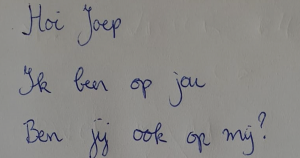 Hoi Joep
Ik ben op jou
Ben jij ook op mij?